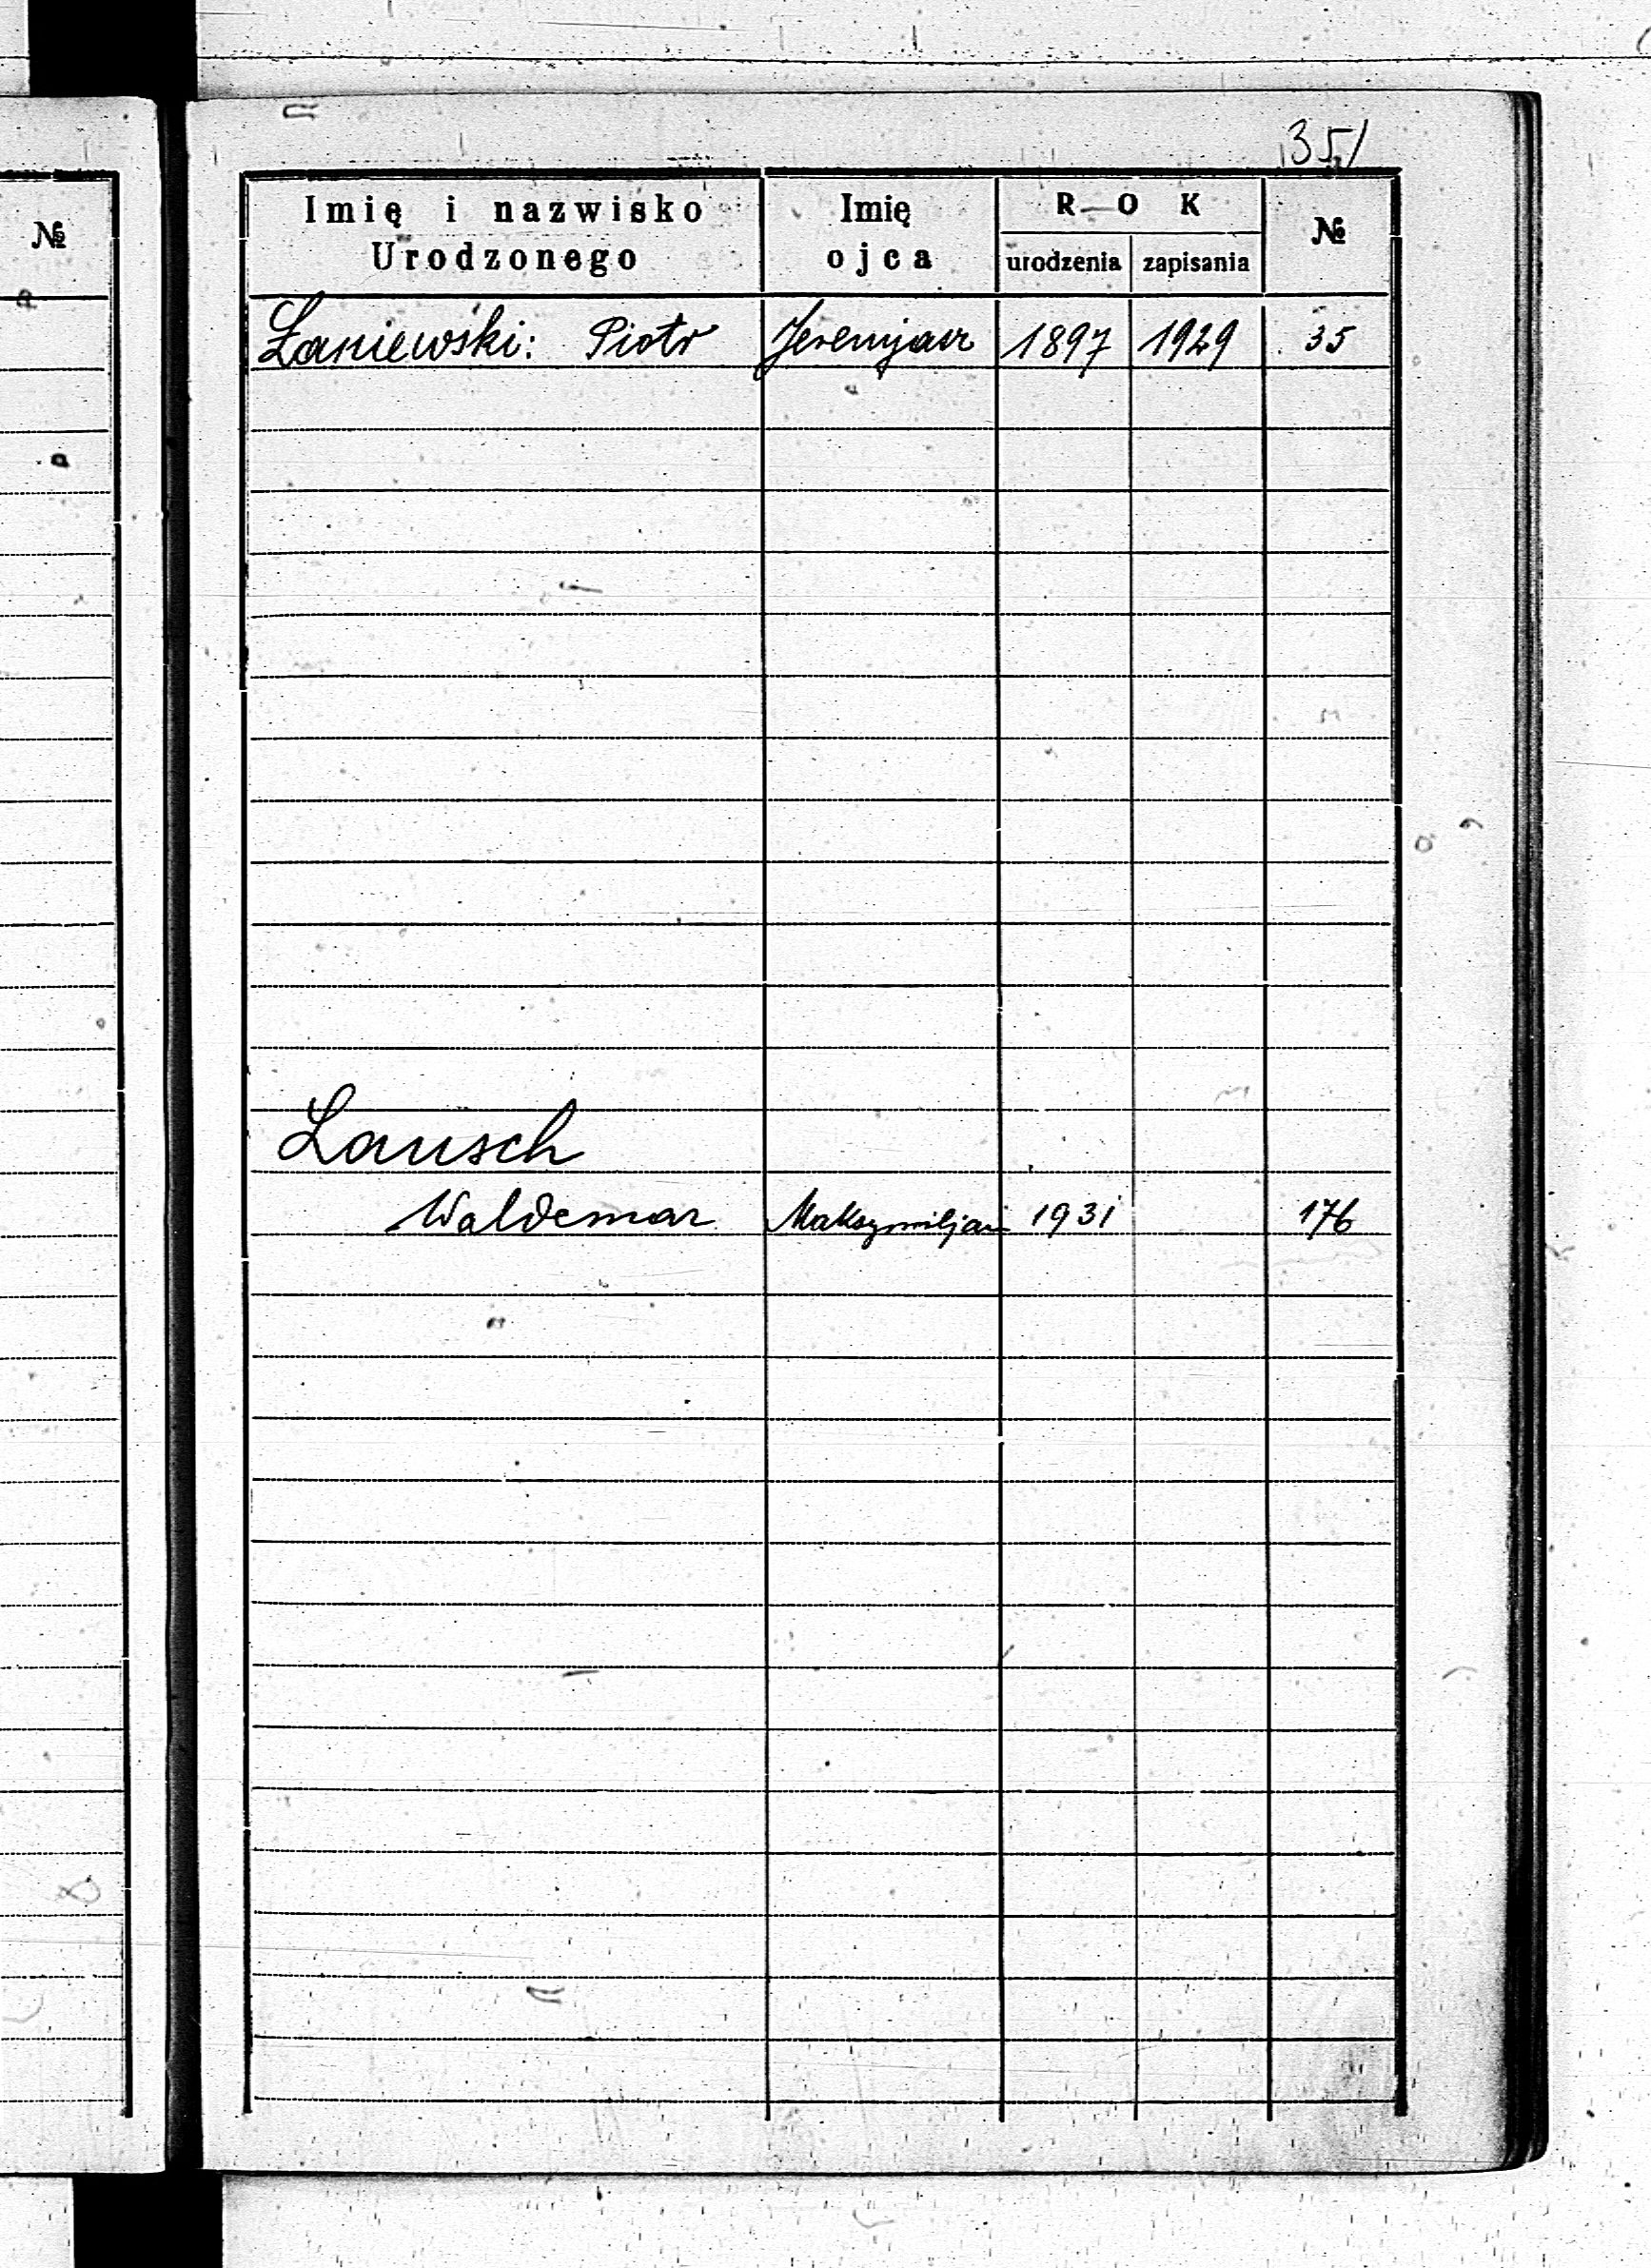 351
№
Imię i nazwisko Urodzonego
Imię ojca
ROK
urodzenia
zapisania
№
Łaniewski: Piotr Jeremjasz 1897 1929 35
Lausch
Waldemar Maksymiljan 1931 176